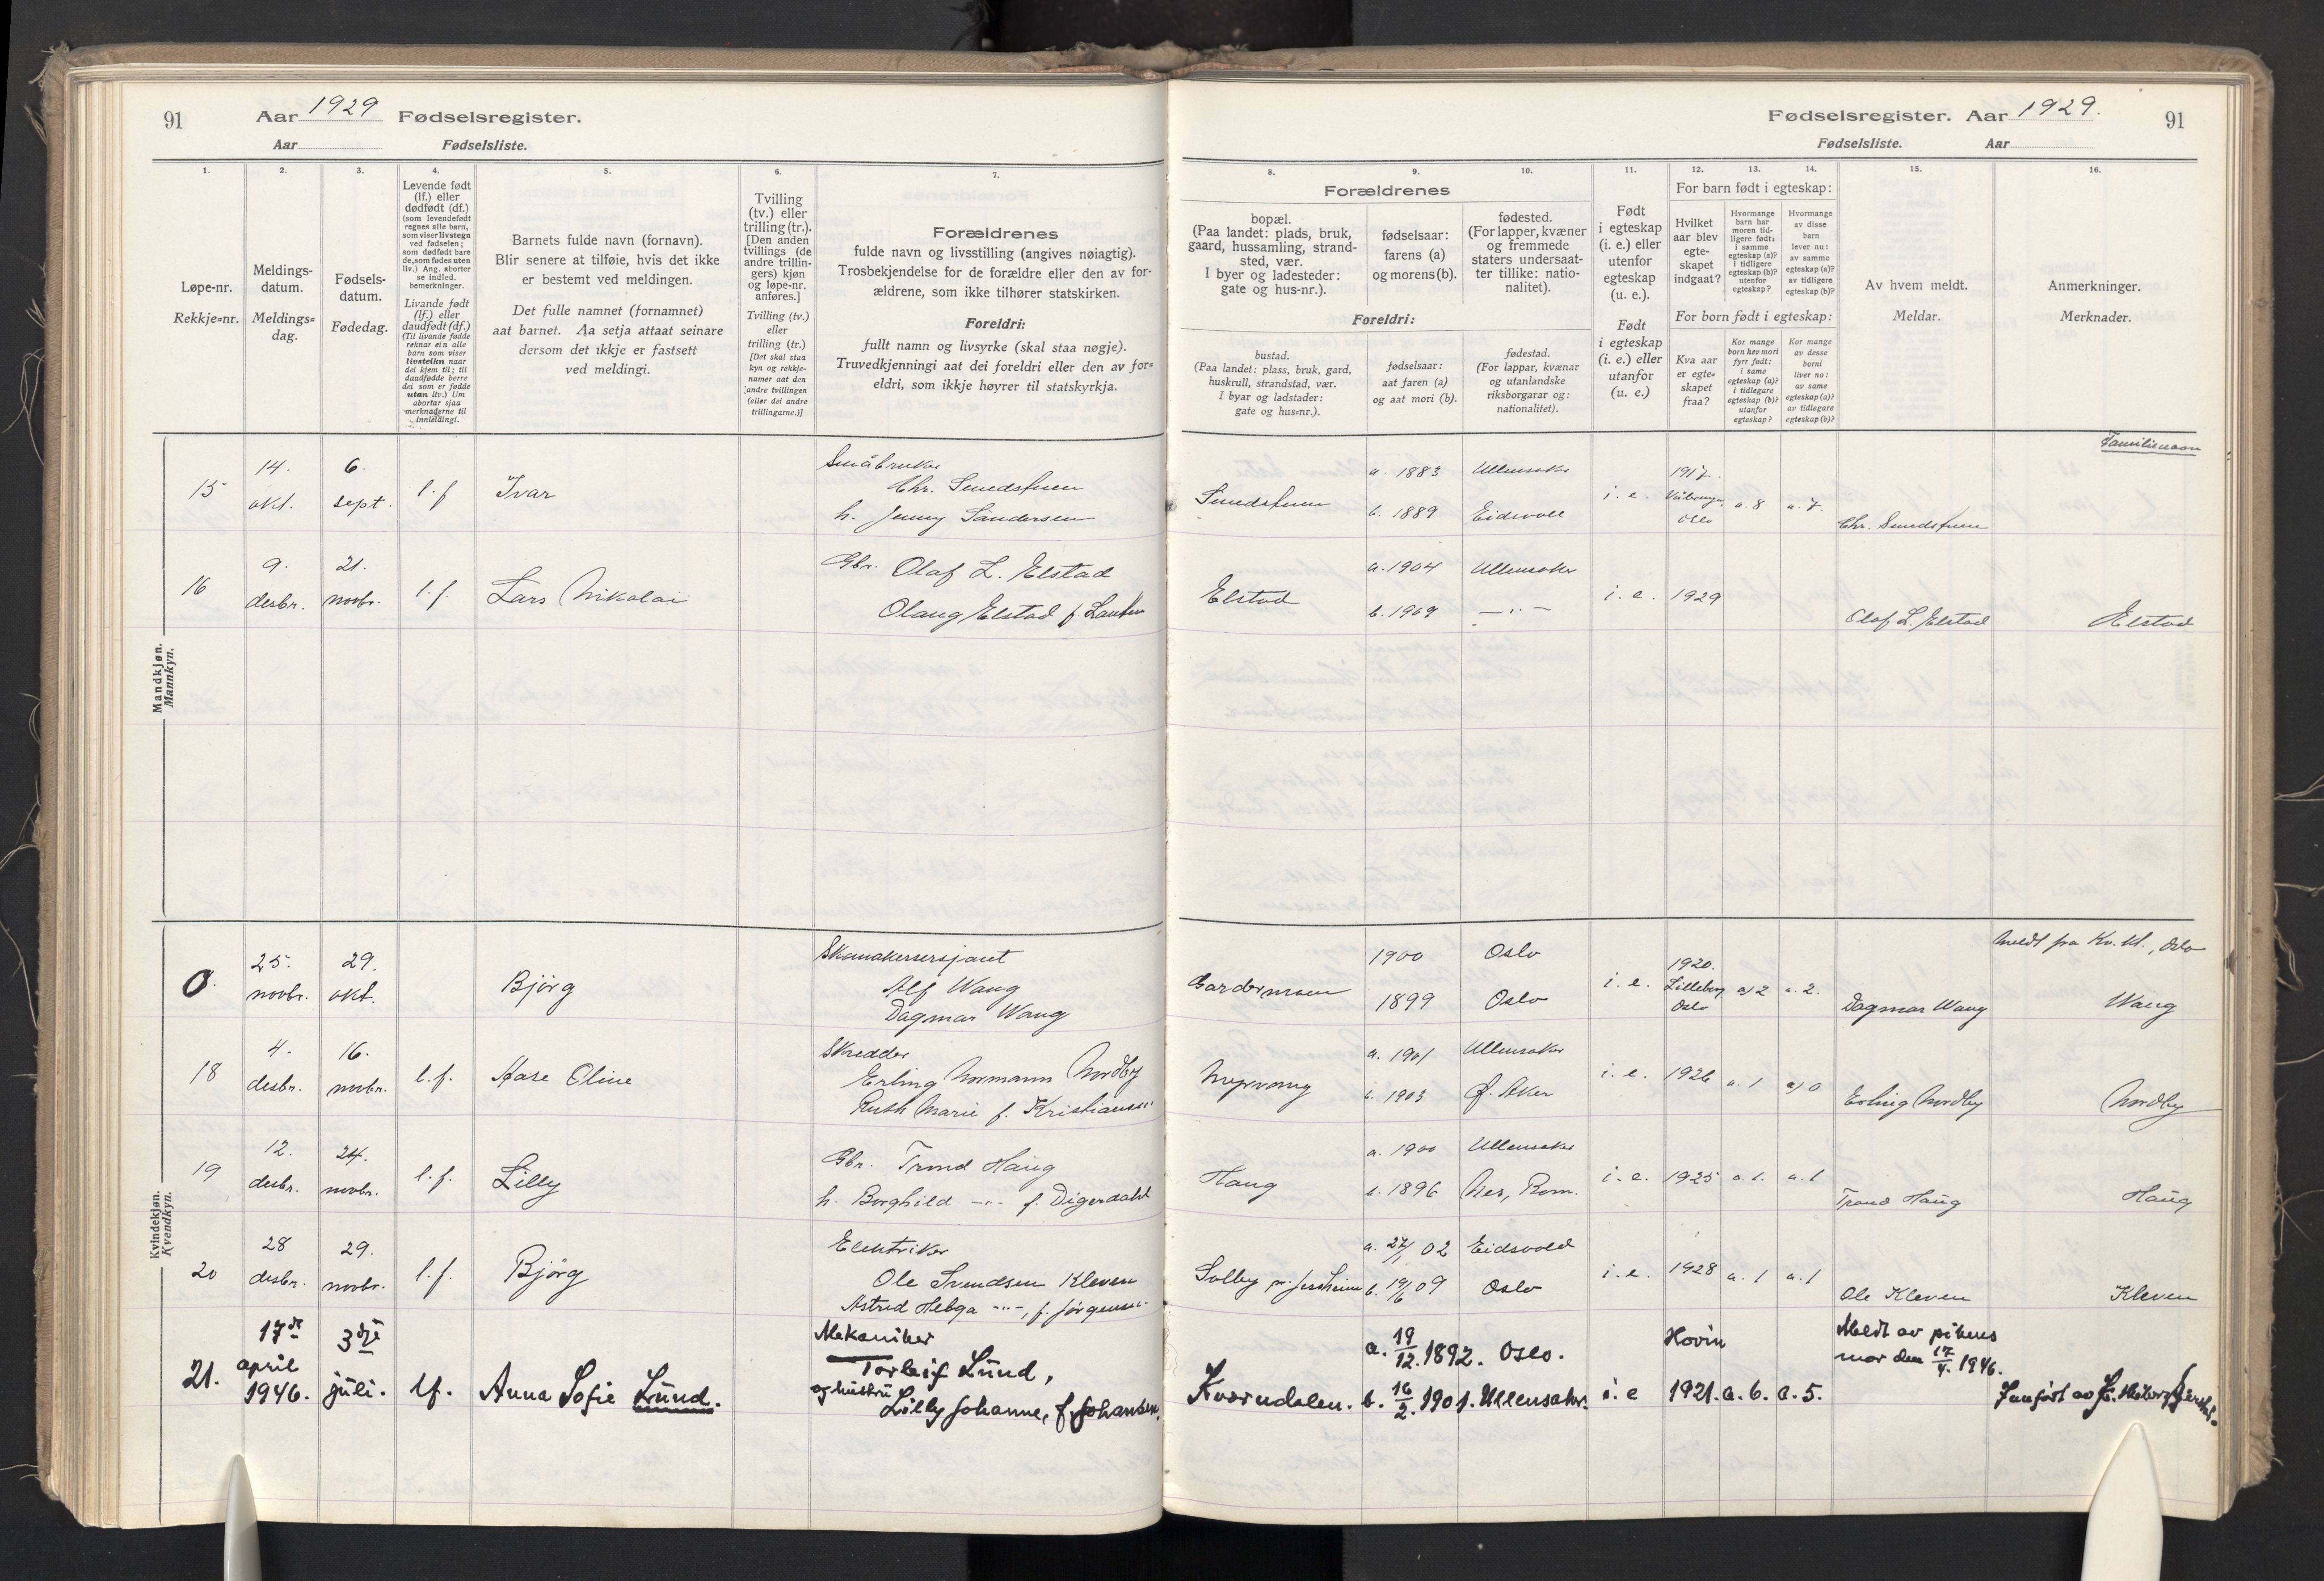 91
Aar 1929 Fødselsregister.
Aar Fødselsliste.
1.
Løpe-nr.
Rekkje=nr.
2.
Meldings-
datum.
Meldings=
dag.
3.
Fødsels-
datum.
Fødedag.
4.
Levende født
(lf.) eller
dødfødt (df.)
(som levendefødt
regnes alle barn,
som viser livstegn
ved fødselen;
som dødfødt bare
de, som fødes uten
liv.) Ang. aborter
se indled.
bemerkninger.
Livande født
(lf.) eller
daudfødt (df.)
(Til livande fødde
reknar ein alle
barn som viser
livsteikn naar
dei kjem til; til
daudfødde berre
dei som er fødde
utan liv.) Um
abortar sjaa
merknaderne til
innleidingi.
5.
Barnets fulde navn (fornavn).
Blir senere at tilføie, hvis det ikke
er bestemt ved meldingen.
Det fulle namnet (fornamnet)
aat barnet. Aa setja attaat seinare
dersom det ikkje er fastsett
ved meldingi.
6.
Tvilling
(tv.) eller
trilling (tr.).
[Den anden
tvillings (de
andre trillin-
gers) kjøn
og løpe-nr.
anføres.]
Tvilling (tv.)
eller
trilling (tr.)
[Det skal staa
kyn og rekkje-
numer aat den
andre tvillingen
(eller dei andre
trillingarne.)]
7.
Forældrenes
fulde navn og livsstilling (angives nøiagtig).
Trosbekjendelse for de forældre eller den av for-
ældrene, som ikke tilhører statskirken.
Foreldri:
fullt namn og livsyrke (skal staa nøgje).
Truvedkjenningi aat dei foreldri eller den av for=
eldri, som ikkje høyrer til statskyrkja.
Fødselsregister. Aar 1929.
91
Fødselsliste. Aar
8. 9. 10.
Forældrenes
bopæl.
(Paa landet: plads, bruk,
gaard, hussamling, strand-
sted, vær.
I byer og ladesteder:
gate og hus-nr.).
fødselsaar:
farens (a)
og morens (b).
fødested.
(For lapper, kvæner
og fremmede
staters undersaat-
ter tillike: natio-
nalitet).
Foreldri:
bustad.
(Paa landet: plass, bruk, gard,
huskrull, strandstad, vær.
I byar og ladstader:
gate og hus=nr.).
fødselsaar:
aat faren (a)
og aat mori (b).
fødestad.
(For lappar, kvænar
og utanlandske
riksborgarar og:
nationalitet).
11.
Født
i egteskap
(i. e.) eller
utenfor
egteskap
(u. e.).
Født
i egteskap
(i. e.) eller
utanfor
(u. e.)
12. 13. 14.
For barn født i egteskap:
Hvilket
aar blev
egte-
skapet
indgaat?
Hvormange
barn har
moren tid-
ligere født:
i samme
egteskap (a)?
i tidligere
egteskap (b)?
utenfor
egteskap?
Hvormange
av disse
barn
lever nu:
av samme
egteskap (a)?
av tidligere
egteskap (b)?
For born født i egteskap:
Kva aar
er egte=
skapet
fraa?
Kor mange
born hev mori
fyrr født:
i same
egteskap (a)?
i tidlegare
egteskap (b)?
utanfor
egteskap?
Kor mange
av desse
borni
liver no:
av same
egteskap (a)?
av tidlegare
egteskap (b)?
15.
Av hvem meldt.
Meldar.
16.
Anmerkninger.
Merknader.
Familienavn
Mandkjøn.
Mannkyn.
15 14. okt. 6. sept. l. f Ivar
Småbruker
Chr. Smedstuen
h. Jenny Sandersen
Smedstuen a. 1883 Ullensaker
b. 1889 Eidsvoll
i. e. 1917. Oslo a. 8 a. 7. Chr. Smedstuen
16 9. desbr. 21. novbr. l. f. Lars Nikolai
Gbr. Olaf L. Elstad
Olaug Elstad f.
Elstad a. 1904 Ullensaker
b. 1909 — " —
i. e. 1929 Olaf L. Elstad Elstad
Kvindekjøn.
Kvendkyn.
0. 25. novbr. 29. okt. Bjørg
Skomakersersjant
Alf Wang
Dagmar Wang
Gardermoen 1900 Oslo
1899 Oslo
i. e. 1920. Lilleborg Oslo a) 2 a. 2. Dagmar Wang
Meldt fra Kv. kl., Oslo
Wang
18 4. desbr. 16. novbr. l. f. Aase Oline
Skredder
Erling Normann Nordby
Ruth Marie f. Kristiansen
a. 1901 Ullensaker
b. 1903 Ø. Aker
i. e. 1926 a. 1 a) 0 Erling Nordby Nordby
19 12. desbr. 24. novbr. l. f. Lilly
Gbr. Trond Haug
h. Borghild — " — f. Digerdahl
Haug a. 1900 Ullensaker
b. 1896 Nes, Rom.
i. e. 1925 a. 1. a. 1 Trond Haug Haug
20 28 desbr. 29. novbr. l. f. Bjørg
Elektriker
Ole Svendsen Kleven
Astrid Helga — " —, f. Jørgensen
Solby pr. Jessheim a. 27/1 02 Eidsvold
b. 19/6 09 Oslo
i. e. 1928 a. 1 a. 1 Ole Kleven Kleven
21. 17de april 1946. 3dje juli. lf. Anna Sofie Lund.
Mekaniker
Torleif Lund,
og hustru
Lilly Johanne, f. Johansen.
Kverndalen. a. 19/12. 1892. Oslo.
b. 16/2. 1901. Ullensaker.
i. e Hovin 1921. a. 6. a. 5.
Meldt av pikens
mor den 17/4. 1946.
Innført av